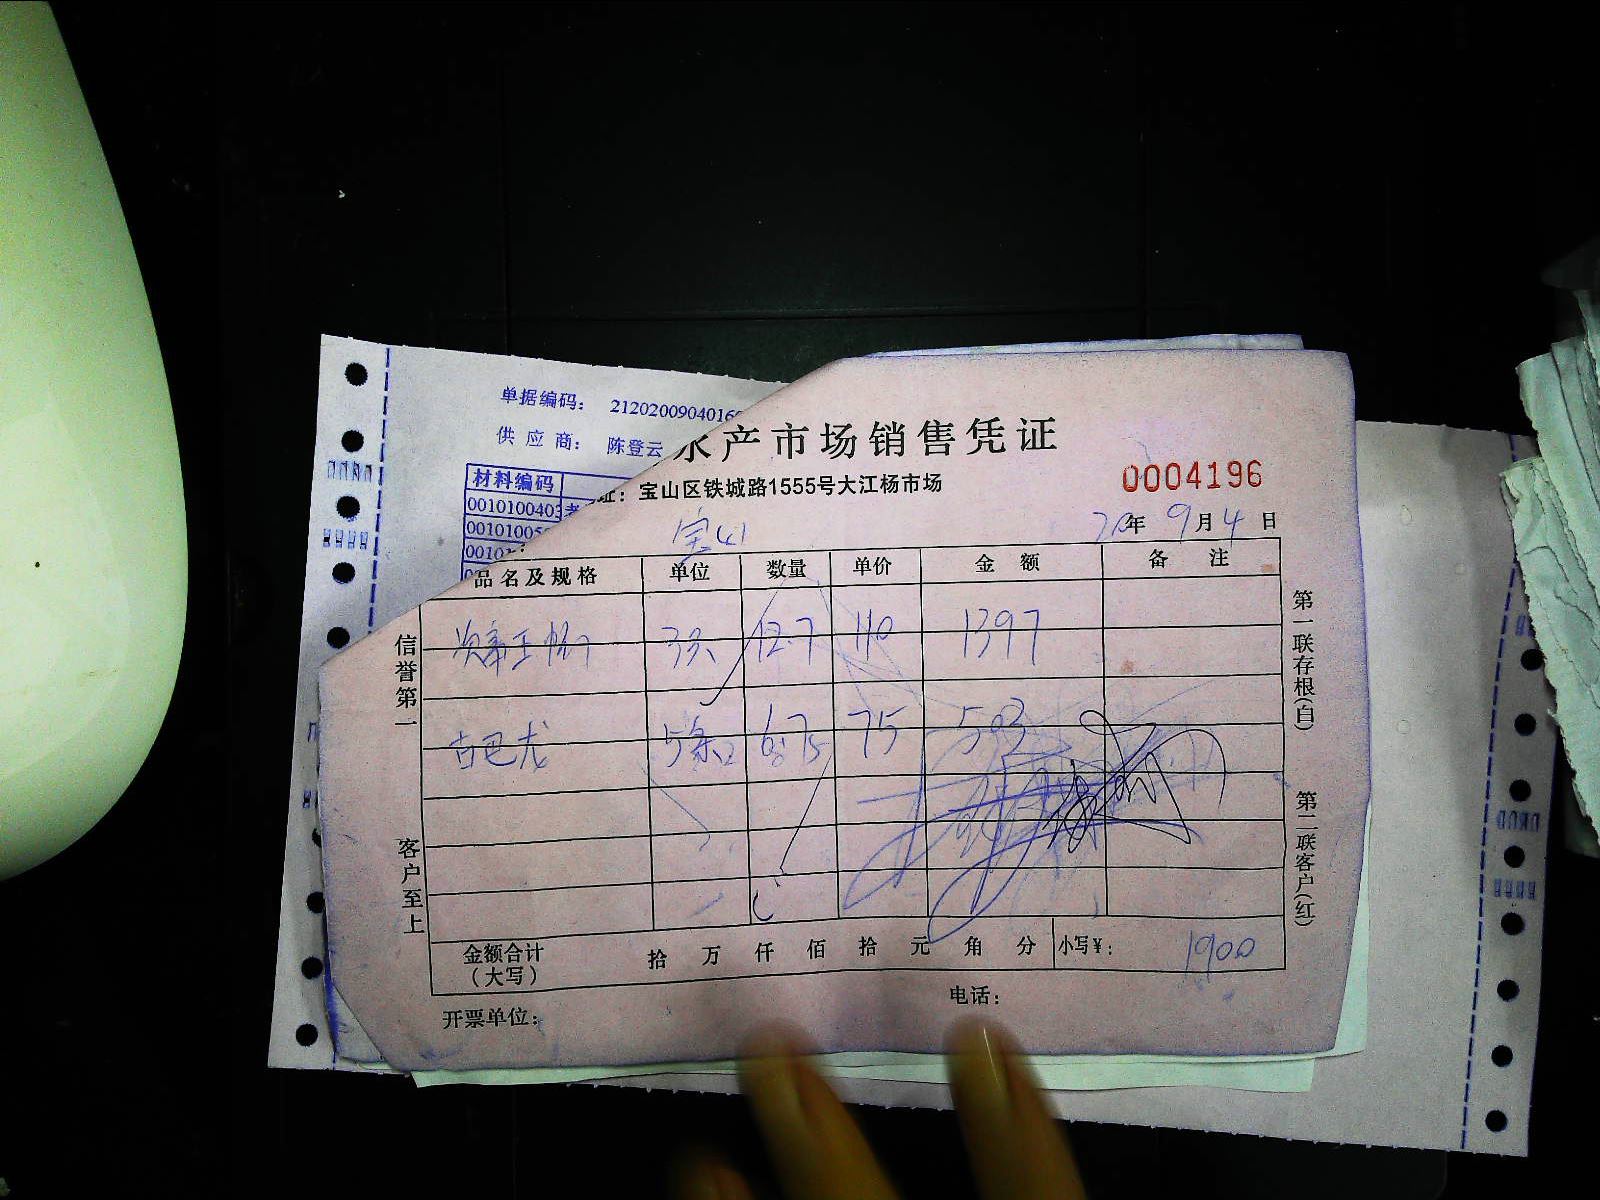 单据编码： 212020090401
供 应 商： 陈登云
材料编码
001010040
00101005
0010
水产市场销售凭证
址：宝山区铁城路1555号大江杨市场
0004196
宝山
20年 9月 4日
品名及规格 单位 数量 单价 金额 备注
12.7 110 1397
古巴龙 5条 6.75 75 503
金额合计（大写） 拾 万 仟 佰 拾 元 角 分 小写￥： 1900
开票单位： 电话：
信誉第一 客户至上
第一联存根（白） 第二联客户（红）